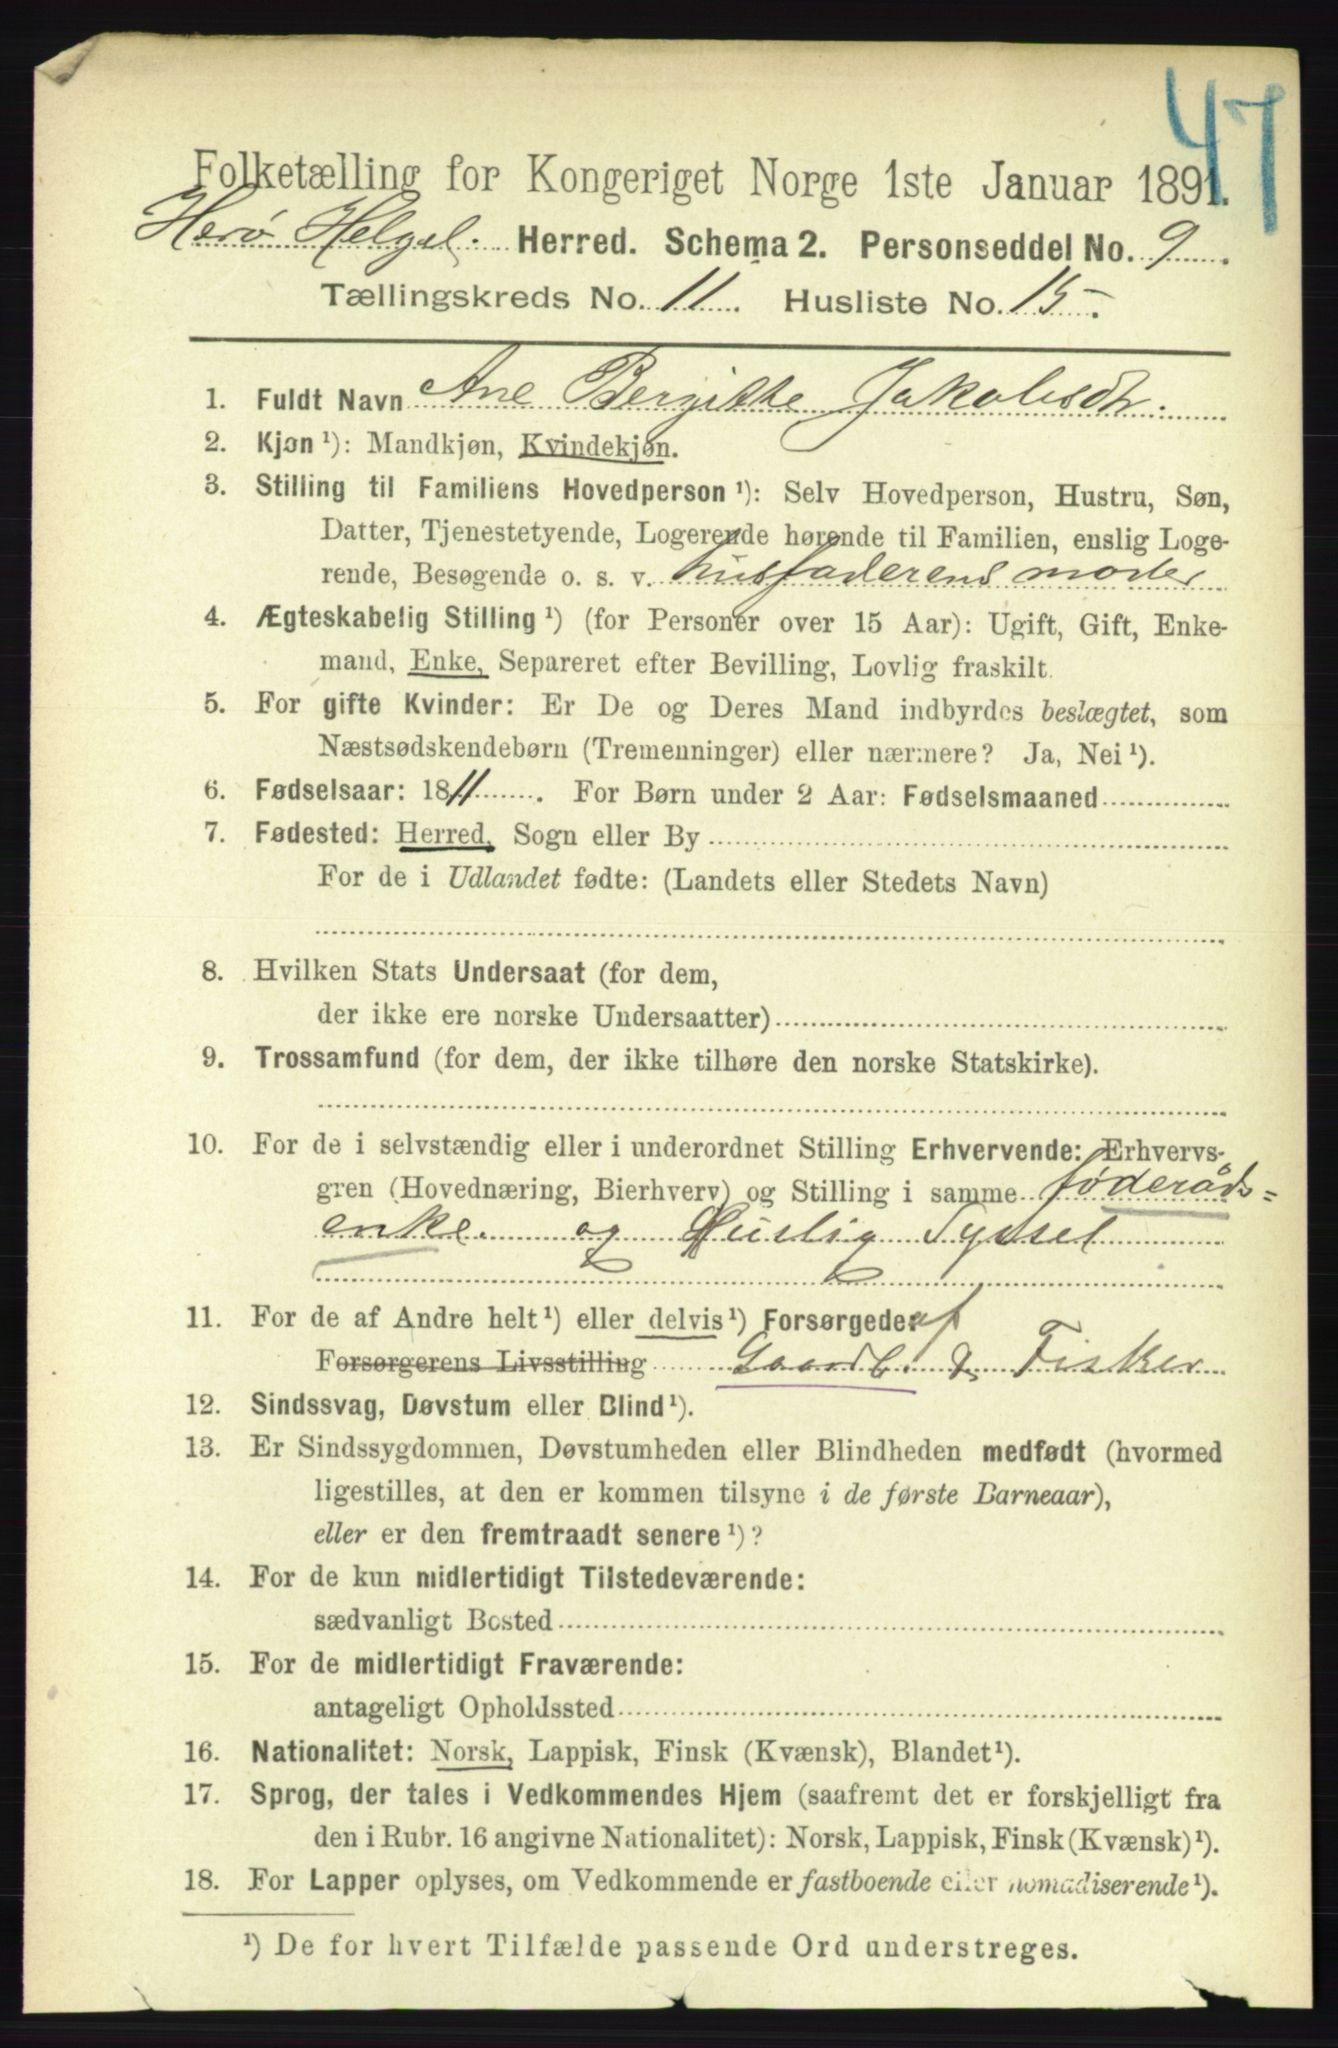 47
Folketælling for Kongeriget Norge 1ste Januar 1891.
Herø Helgel. Herred. Schema 2. Personseddel No. 9.
Tællingskreds No. 11. Husliste No. 15.
1. Fuldt Navn Ane Bergitte Jakobsdtr.
2. Kjøn ¹): Mandkjøn, Kvindekjøn.
3. Stilling til Familiens Hovedperson ¹): Selv Hovedperson, Hustru, Søn,
Datter, Tjenestetyende, Logerende hørende til Familien, enslig Loge-
rende, Besøgende o. s. v. husfaderens moder
4. Ægteskabelig Stilling ¹) (for Personer over 15 Aar): Ugift, Gift, Enke-
mand, Enke, Separeret efter Bevilling, Lovlig fraskilt.
5. For gifte Kvinder: Er De og Deres Mand indbyrdes beslægtet, som
Næstsødskendebørn (Tremenninger) eller nærmere? Ja, Nei ¹).
6. Fødselsaar: 1811. For Børn under 2 Aar: Fødselsmaaned
7. Fødested: Herred, Sogn eller By
For de i Udlandet fødte: (Landets eller Stedets Navn)
8. Hvilken Stats Undersaat (for dem,
der ikke ere norske Undersaatter)
9. Trossamfund (for dem, der ikke tilhøre den norske Statskirke).
10. For de i selvstændig eller i underordnet Stilling Erhvervende: Erhvervs-
gren (Hovednæring, Bierhverv) og Stilling i samme føderåds=
enke. og Huslig Syssel
11. For de af Andre helt ¹) eller delvis ¹) Forsørgede: af
Forsørgerens Livsstilling Gaardb. & Fisker
12. Sindssvag, Døvstum eller Blind ¹).
13. Er Sindssygdommen, Døvstumheden eller Blindheden medfødt (hvormed
ligestilles, at den er kommen tilsyne i de første Barneaar),
eller er den fremtraadt senere ¹)?
14. For de kun midlertidigt Tilstedeværende:
sædvanligt Bosted
15. For de midlertidigt Fraværende:
antageligt Opholdssted
16. Nationalitet: Norsk, Lappisk, Finsk (Kvænsk), Blandet ¹).
17. Sprog, der tales i Vedkommendes Hjem (saafremt det er forskjelligt fra
den i Rubr. 16 angivne Nationalitet): Norsk, Lappisk, Finsk (Kvænsk) ¹).
18. For Lapper oplyses, om Vedkommende er fastboende eller nomadiserende ¹).
¹) De for hvert Tilfælde passende Ord understreges.